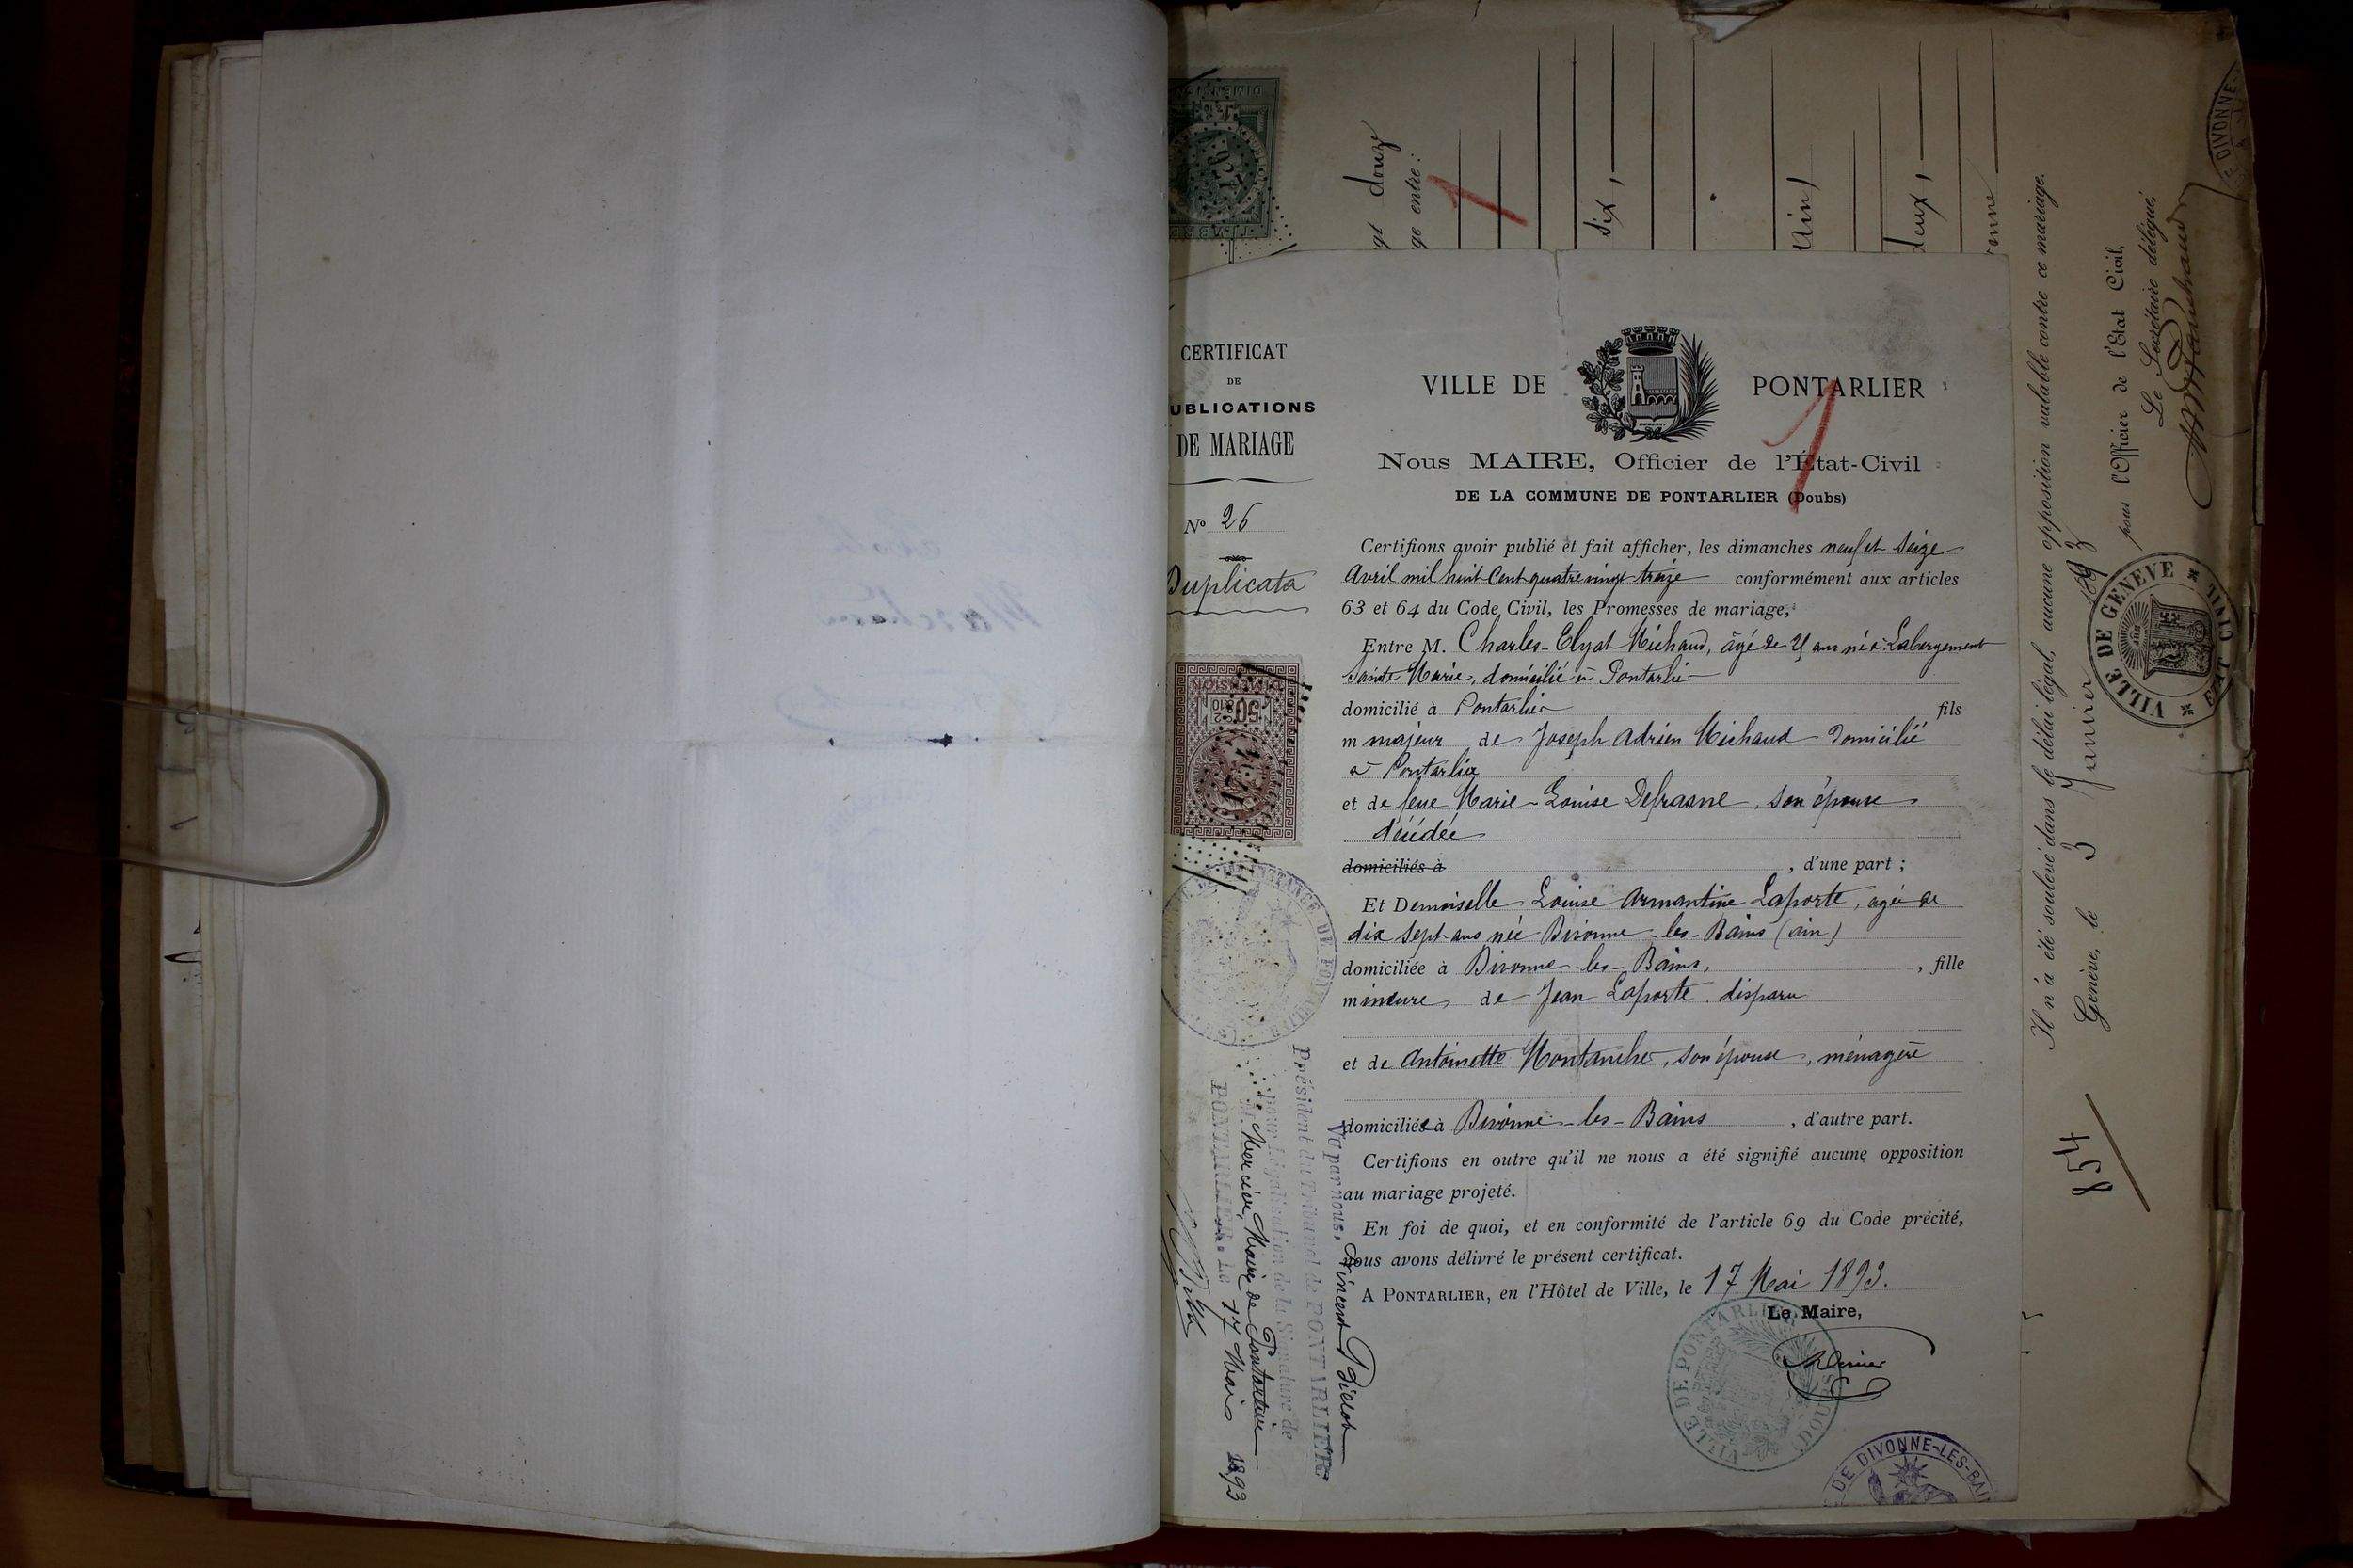 CERTIFICAT
DE
UBLICATIONS
DE MARIAGE
N° 26
Duplicata
VILLE DE PONTARLIER
Nous MAIRE, Officier de l'État-Civil
DE LA COMMUNE DE PONTARLIER (Doubs)
Certifions avoir publié et fait afficher, les dimanches neuf et seize
Avril mil huit Cent quatre vingt treize conformément aux articles
63 et 64 du Code Civil, les Promesses de mariage,
Entre M. Charles-Elyat Michaud, âgé de ans né à Labergement
Sainte Marie, domicilié à Pontarlier
domicilié à Pontarlier fils
m majeur de Joseph Adrien Michaud Domicilié
à Pontarlier
et de feue Marie-Louise Defrasne, son épouse
décédée
domiciliés à , d'une part ;
Et Demoiselle Louise Armantine Laporte, agée de
dix sept ans née Divonne-les-Bains (ain)
domiciliée à Divonne-les-Bains, , fille
mineure de Jean Laporte, disparu
et de Antoinette , son épouse, ménagère
domiciliée à Divonne-les-Bains , d'autre part.
Certifions en outre qu'il ne nous a été signifié aucune opposition
au mariage projeté.
En foi de quoi, et en conformité de l'article 69 du Code précité,
nous avons délivré le présent certificat.
A PONTARLIER, en l'Hôtel de Ville, le 17 Mai 1893.
Le Maire,
VILLE DE PONTARLIER (DOUBS)
DE DIVONNE-LES-BAI
Vu par nous, Vincent
Président du Tribunal de PONTARLIER
pour légalisation de la Signature de
M. Mercier, Maire de Pontarlier
PONTARLIER, Le 17 Mai 1893
DIMENSION
50c
2/10
gt douze
ge entre :
1
six,
Ain)
deux,
onne
1
Il n'a été soulevé dans le délai légal, aucune opposition valable contre ce mariage.
Genève, le 3 Janvier 1893
pour l'Officier de l'Etat Civil,
Le Secrétaire délégué,
VILLE DE GENEVE
ETAT CIVIL
854
DIVONNE